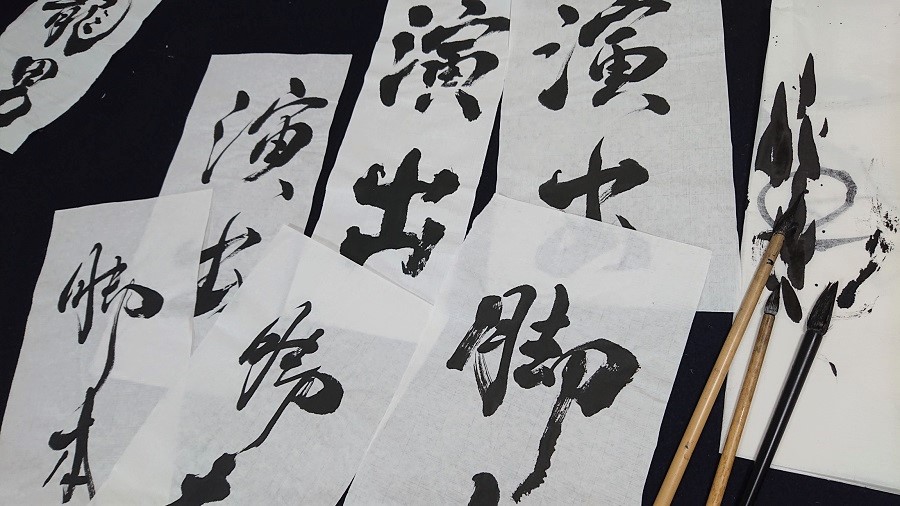 龍男
演出
演出
演出
脚本
脚本
脚